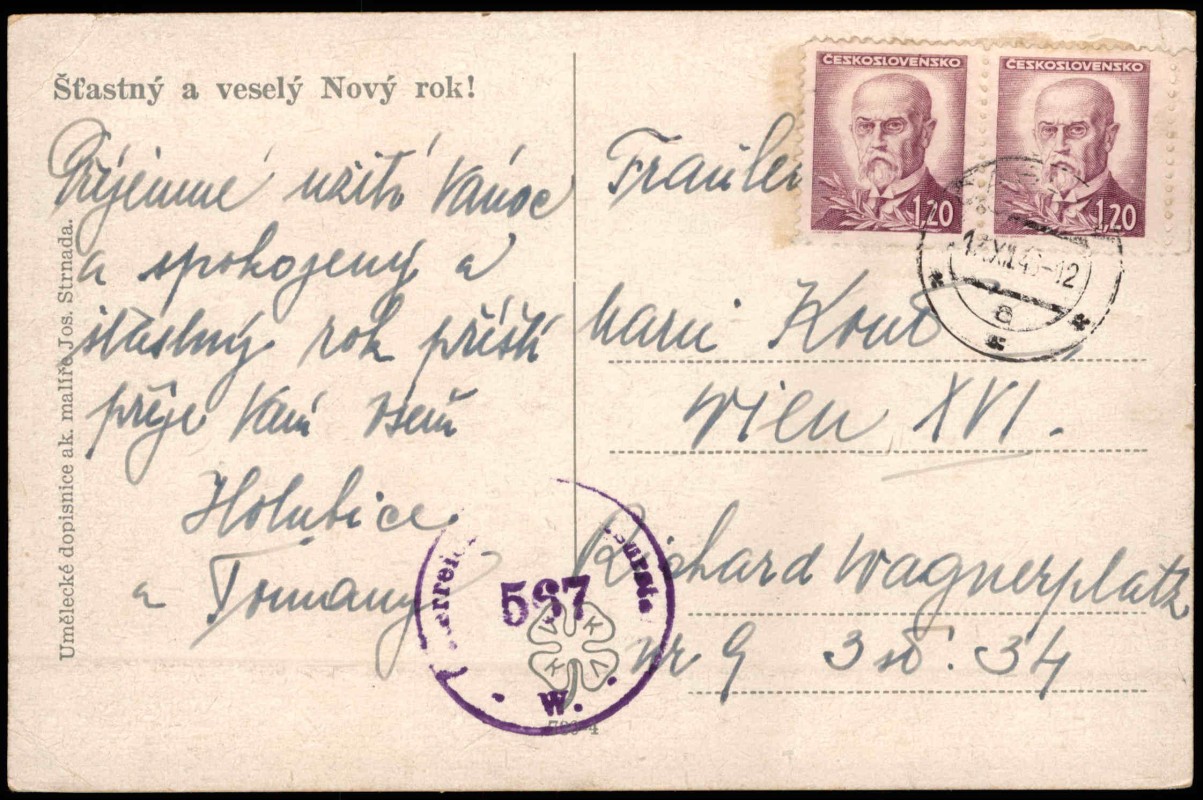 Šťastný a veselý Nový rok!
Příjemné užití Vánoc
a spokojený a
šťastný rok příští
přeje Vám všem
Holubice
a
Umělecké dopisnice ak. malíře Jos. Strnada.
ČESKOSLOVENSKO
1,20
ČESKOSLOVENSKO
1,20
a
Fräulei
Wien XVI.
Richard Wagnerplatz
nr 9 3 st. 34
567
V K
K V
W.